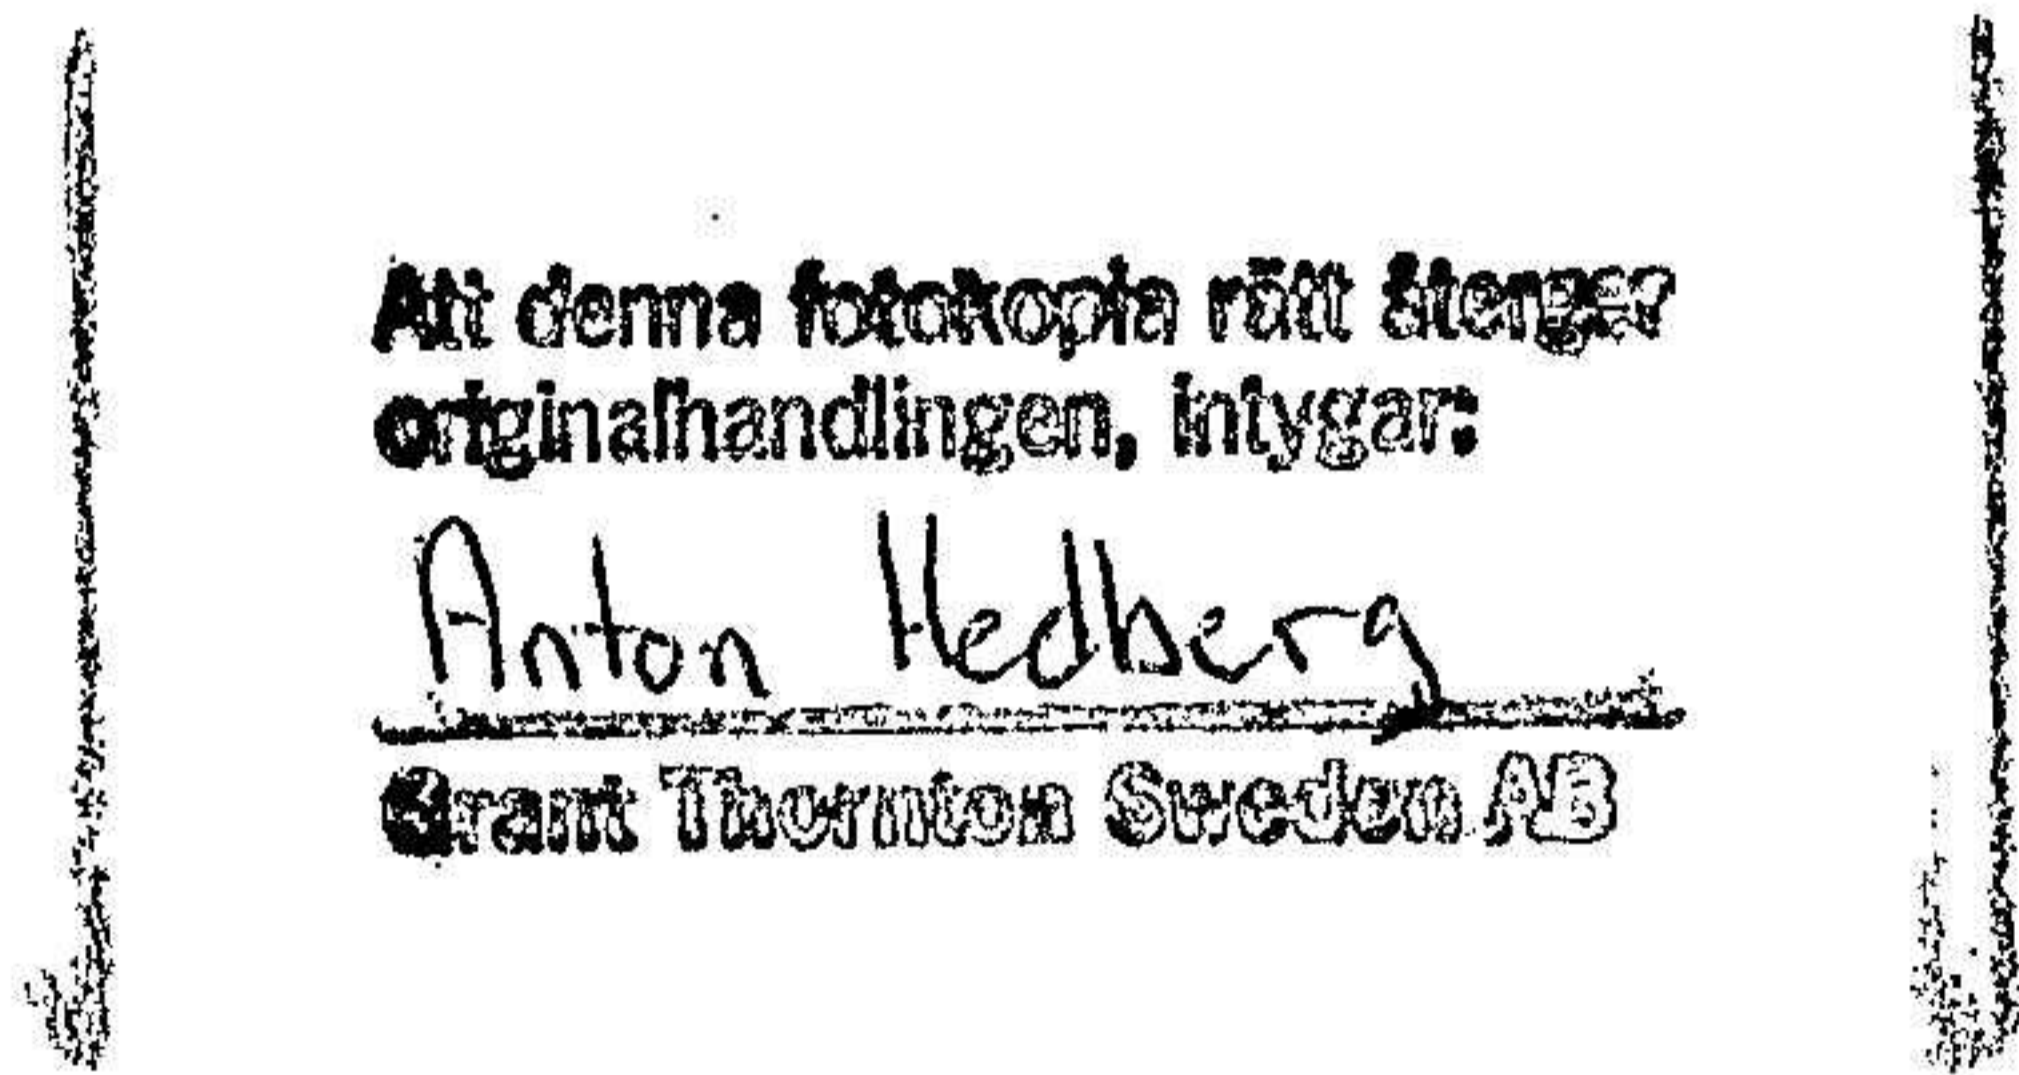 Att denna fotokopia rätt återger
originalhandlingen, intygar:
Anton Hedberg
Grant Thornton Sweden AB